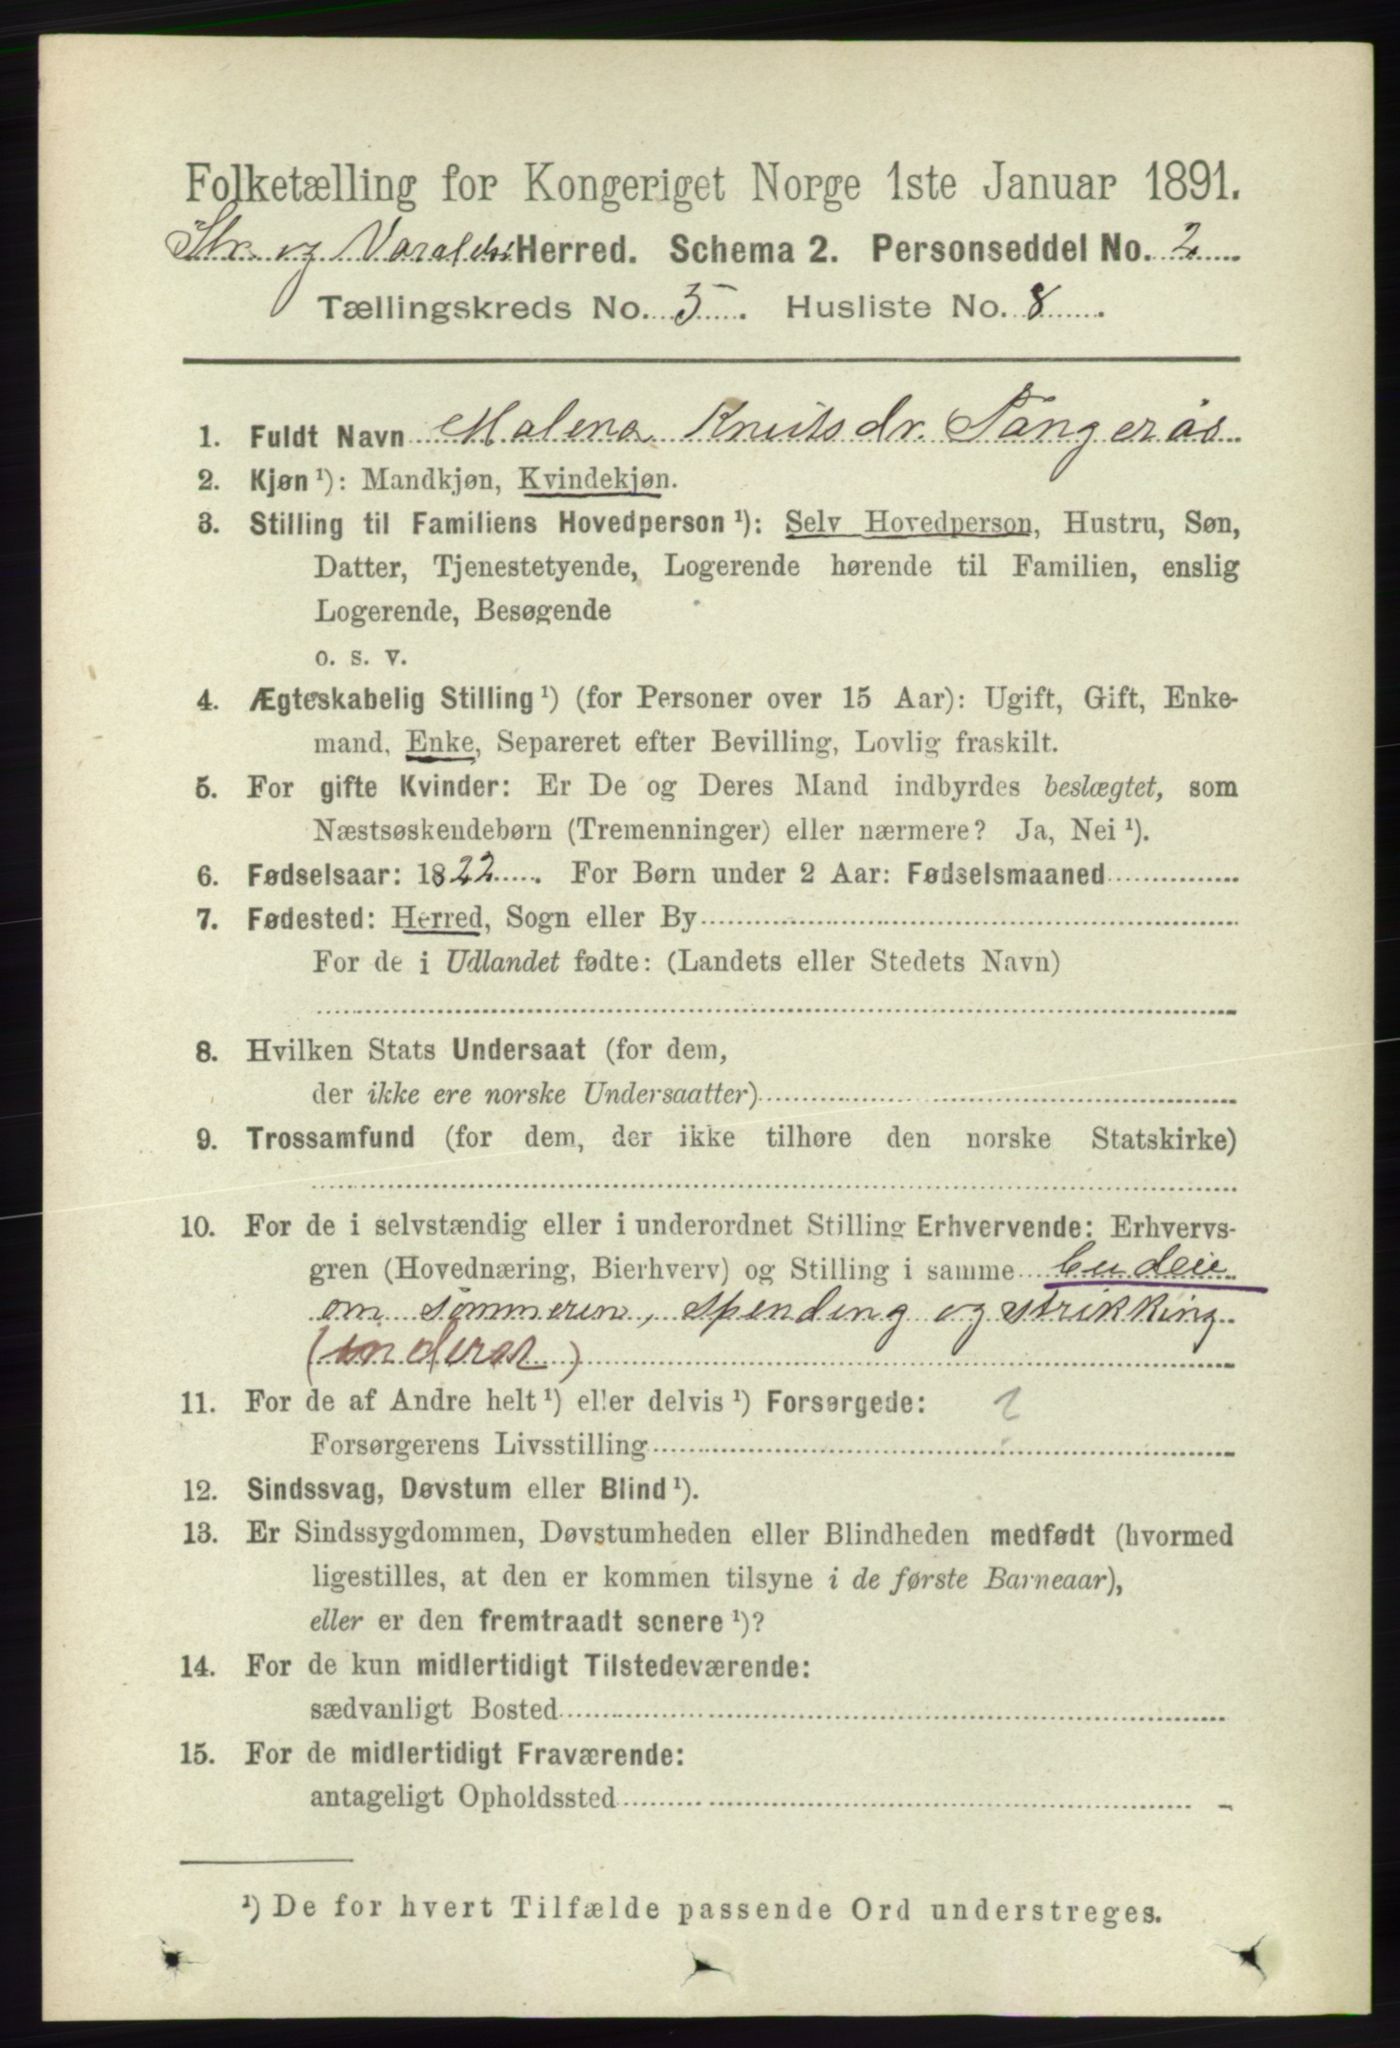 Folketælling for Kongeriget Norge 1ste Januar 1891.
Str. og Varalds Herred. Schema 2. Personseddel No. 2
Tællingskreds No. 5. Husliste No. 8.
1. Fuldt Navn Malena Knutsdr. Tangerås
2. Kjøn ¹): Mandkjøn, Kvindekjøn.
3. Stilling til Familiens Hovedperson ¹): Selv Hovedperson, Hustru, Søn,
Datter, Tjenestetyende, Logerende hørende til Familien, enslig
Logerende, Besøgende
o. s. v.
4. Ægteskabelig Stilling ¹) (for Personer over 15 Aar): Ugift, Gift, Enke-
mand, Enke, Separeret efter Bevilling, Lovlig fraskilt.
5. For gifte Kvinder: Er De og Deres Mand indbyrdes beslægtet, som
Næstsøskendebørn (Tremenninger) eller nærmere? Ja, Nei ¹).
6. Fødselsaar: 1822. For Børn under 2 Aar: Fødselsmaaned
7. Fødested: Herred, Sogn eller By
For de i Udlandet fødte: (Landets eller Stedets Navn)
8. Hvilken Stats Undersaat (for dem,
der ikke ere norske Undersaatter)
9. Trossamfund (for dem, der ikke tilhøre den norske Statskirke)
10. For de i selvstændig eller i underordnet Stilling Erhvervende: Erhvervs-
gren (Hovednæring, Bierhverv) og Stilling i samme budeie
om sommeren, spending og strikking
(inderst)
11. For de af Andre helt ¹) eller delvis ¹) Forsørgede:
Forsørgerens Livsstilling
12. Sindssvag, Døvstum eller Blind ¹).
13. Er Sindssygdommen, Døvstumheden eller Blindheden medfødt (hvormed
ligestilles, at den er kommen tilsyne i de første Barneaar),
eller er den fremtraadt senere ¹)?
14. For de kun midlertidigt Tilstedeværende:
sædvanligt Bosted
15. For de midlertidigt Fraværende:
antageligt Opholdssted
¹) De for hvert Tilfælde passende Ord understreges.